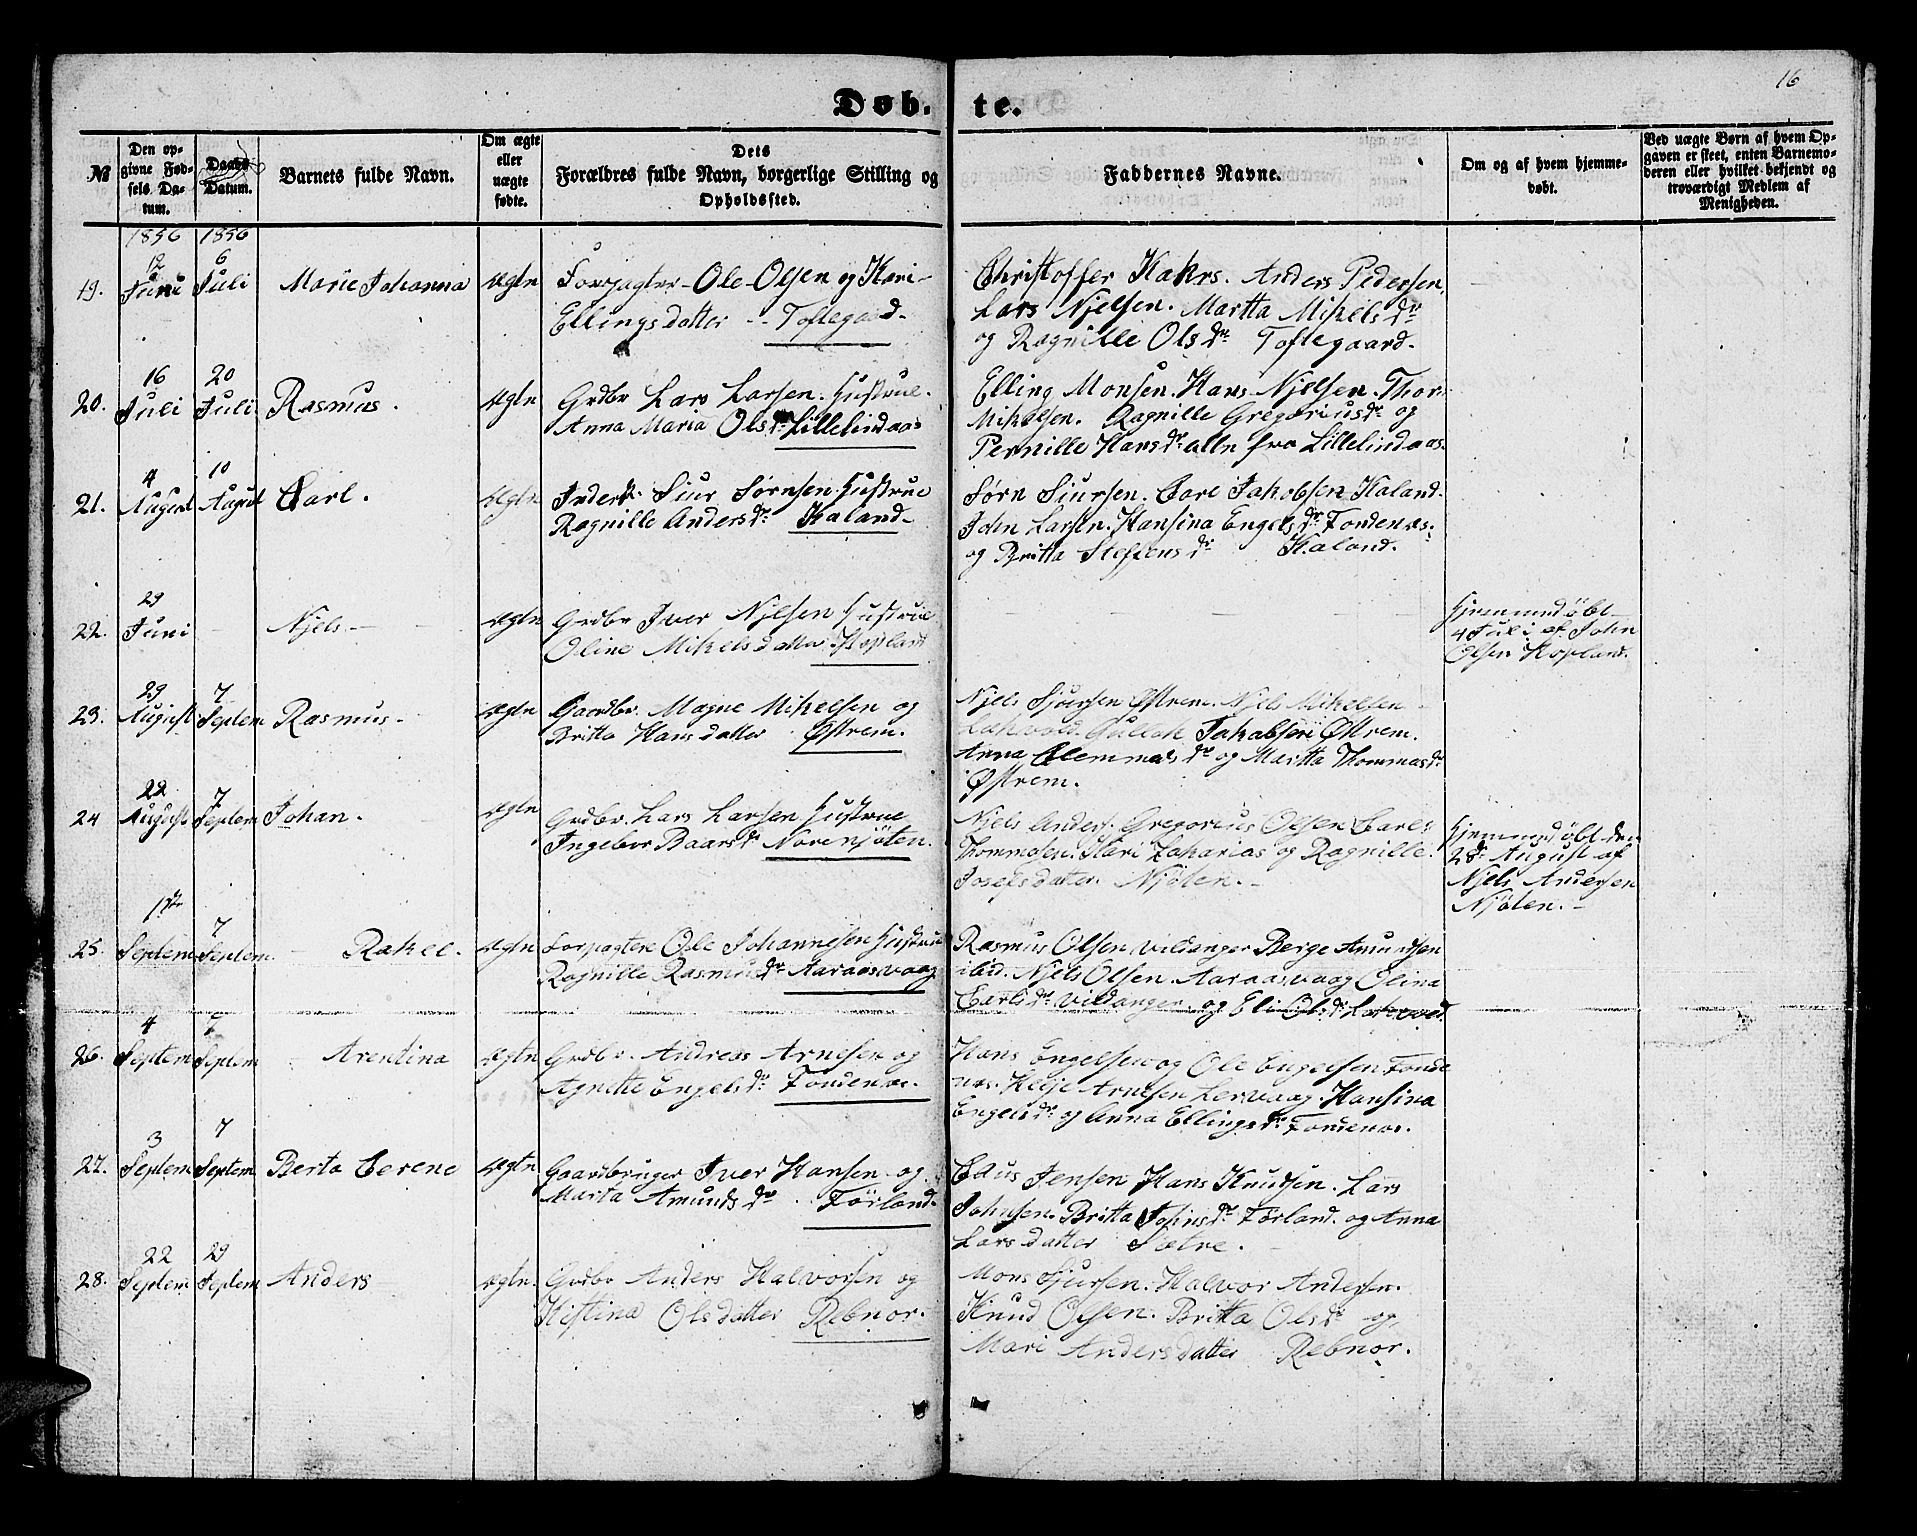 16
Døb- te.
№
Den op-
givne Fød-
sels Da-
tum.
Daabs
Datum.
Barnets fulde Navn.
Om ægte
eller
uægte
fødte.
Dets
Forældres fulde Navn, borgerlige Stilling og
Opholdssted.
Faddernes Navne.
Om og af hvem hjemme-
døbt.
Ved uægte Børn af hvem Op-
gaven er skeet, enten Barnemo-
deren eller hvilket bekjendt og
troværdigt Medlem af
Menigheden.
1856 1856
19. 12 Juni 6 Juli Marie Johanna Ægte Forpagter Ole Olsen og Kari
Ellingsdatter Toftegaard
Christoffer Anders Pedersen,
Lars Njelsen. Martta Mikels dr
og Ragnille Ols dr Toftegaard.
20. 16 Juli 20 Juli Rasmus. Ægte Grdbr Lars Larsen. Hustrue
Anna Maria Ols dr Lillelindaas
Elling Monsen. Hans Njelsen. Thor
Mikelsen. Ragnille Gregorius dr og
Pernille Hans dr alle fra Lillelindaas.
21. 4 August 10 August Carl. Ægte Inderst. Siur Sørnsen Hustrue
Ragnille Anders dr Kaland
Sørn Siursen. Carl Jakobsen Kaland.
John Larsen. Hansina Engels dr Fondenæs.
og Britta Steffens dr Kaland.
22. 29 Juni Njels Ægte Grdbr Iver Njelsen Hustrue
Oline Mikelsdatter Hopland
Hjemmedøbt
4 Juli af John
Olsen Hopland.
23. 29 August 7 Septem Rasmus Ægte Gaardbr. Magne Mikelsen og
Britta Hansdatter Østrem.
Njels Sjursen Østrem. Njels Mikelsen
Gullak Jakobsen Østrem.
Anna Clemmets dr og Martta Thommas dr
Østrem.
24 22 August 7 Septem Johan. Ægte Grdbr. Lars Larsen Hustrue
Ingebor Baars dr Norenjøten.
Njels Anders. Gregorius Olsen Carl
Thommasen. Kari Zakarias og Ragnille
Josefsdatter. Njøten.
Hjemmedøbt den
28d August af
Njels Andersen
Njøten.
25. 1ste Septem 7 Septem Rakel. Ægte Forpagter Ole Johannesen Hustrue
Ragnille Rasmus dr Aaraasvaag
Rasmus Olsen Vildanger Berge Amundsen
ibid. Njels Olsen. Aaraasvaag Olina
Carls dr Vildanger. og Eli Ols dr
26. 4 Septem 7 Septem Arentina Ægte Grdbr. Andreas Arnesen og
Agnette Engels dr Fondenæs.
Hans Engelsen og Ole Engelsen Fonde
næs. Helje Arnesen Lervaag. Hansina
Engels dr og Anna Ellings dr Fondenæs.
27. 3 Septem 7 Septem Berta Cerene Ægte Gaardbruger Iver Hansen og
Marta Amunds dr Förland.
Claus Jensen Hans Knudsen. Lars
Johnsen. Britta Johns dr Førland. og Anna
Larsdatter Sætre.
28. 22 Septem 29 Septem Anders Ægte. Grdbr Anders Halvorsen og
Kistina Olsdatter Rebnor.
Mons Sjursen. Halvor Andersen.
Knud Olsen. Britta Ols dr og
Mari Andersdatter Rebnor.